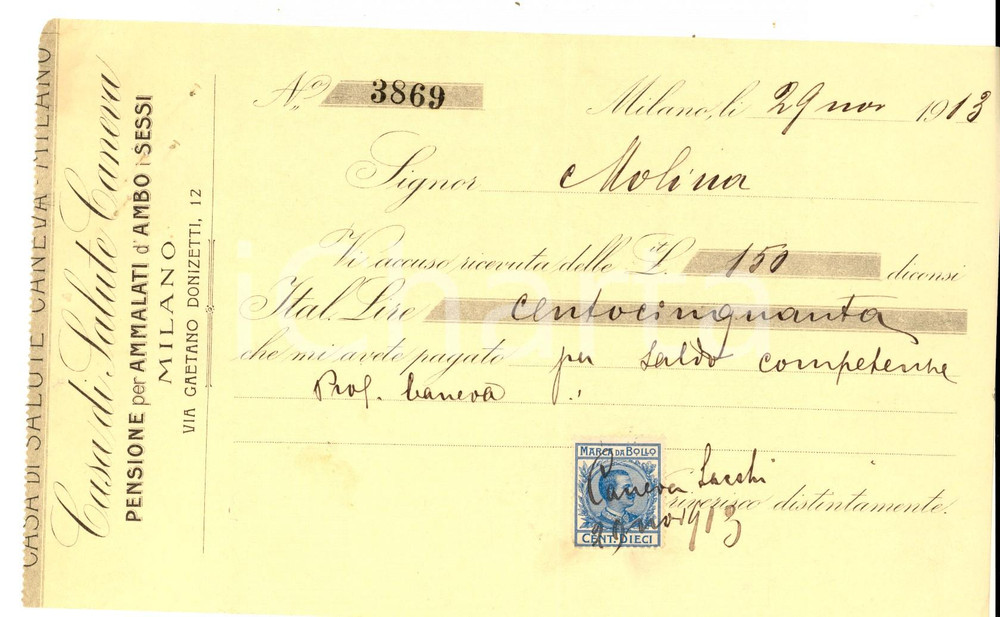 CASA DI SALUTE CANEVA - MILANO
Casa di Salute Caneva
PENSIONE per AMMALATI d'AMBO i SESSI
MILANO
VIA GAETANO DONIZETTI, 12
No. 3869
Milano, li 29 nov 1913
Signor Molina
Vi accuso ricevuta delle It. L. 150 diconsi
Ital. Lire centocinquanta
che mi avete pagato per saldo competenze
Prof. Caneva
MARCA DA BOLLO
Caneva
riverisco distintamente.
29 nov 913
CENT. DIECI
iCharta